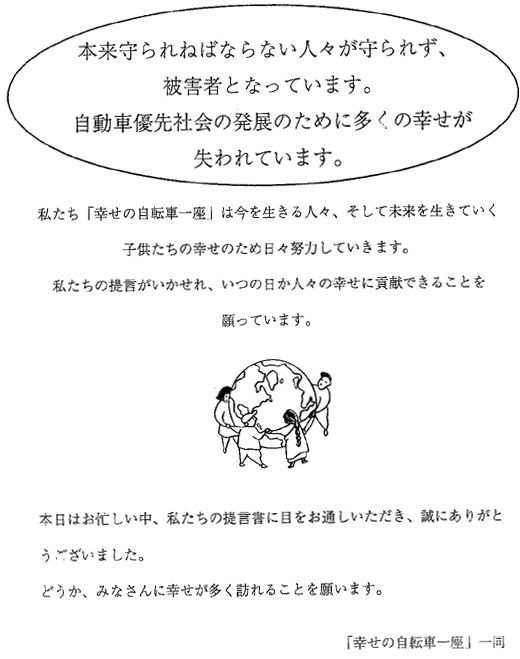 本来守られねばならない人々が守られず、
被害者となっています。
自動車優先社会の発展のために多くの幸せが
失われています。
私たち「幸せの自転車一座」は今を生きる人々、そして未来を生きていく
子供たちの幸せのため日々努力していきます。
私たちの提言がいかせれ、いつの日か人々の幸せに貢献できることを
願っています。
本日はお忙しい中、私たちの提言書に目をお通しいただき、誠にありがと
うございました。
どうか、みなさんに幸せが多く訪れることを願います。
「幸せの自転車一座」一同